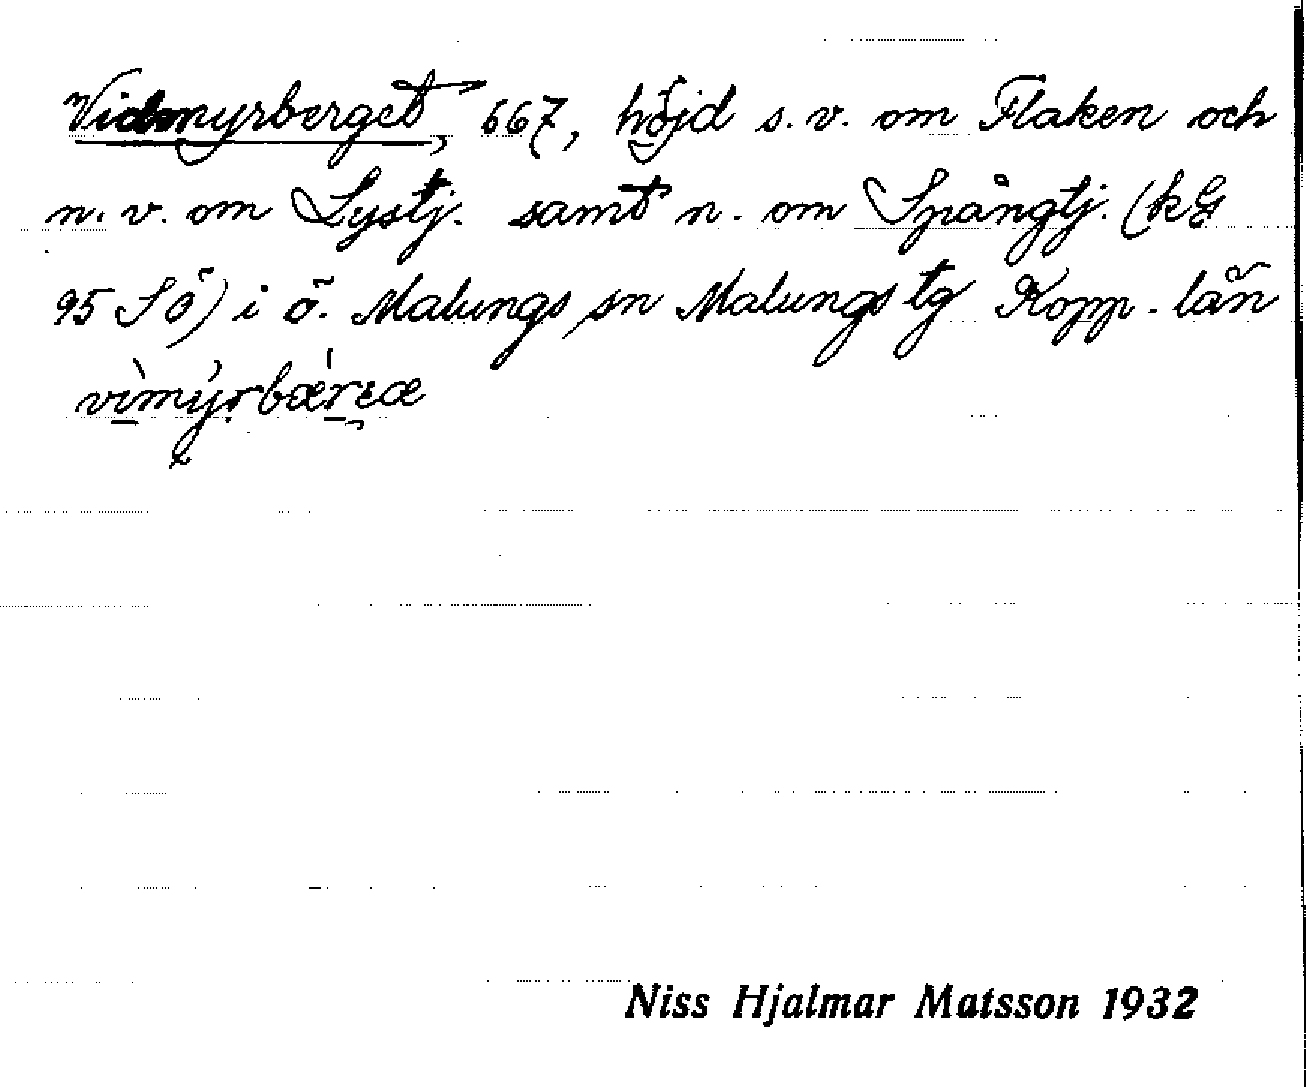 Vidmyrberget, 667, höjd s.v. om Flaken och
n.v. om Lystj. samt n. om Spångtj. (kG
95 S Ö) i ö. Malungs sn Malungs tg Kopp. län
vìmýrbærɛæ
Niss Hjalmar Matsson 1932